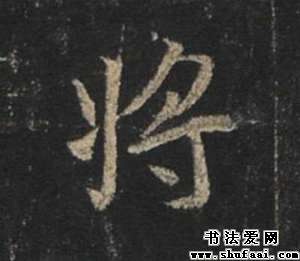 将
书法爱网
www.shufaai.com